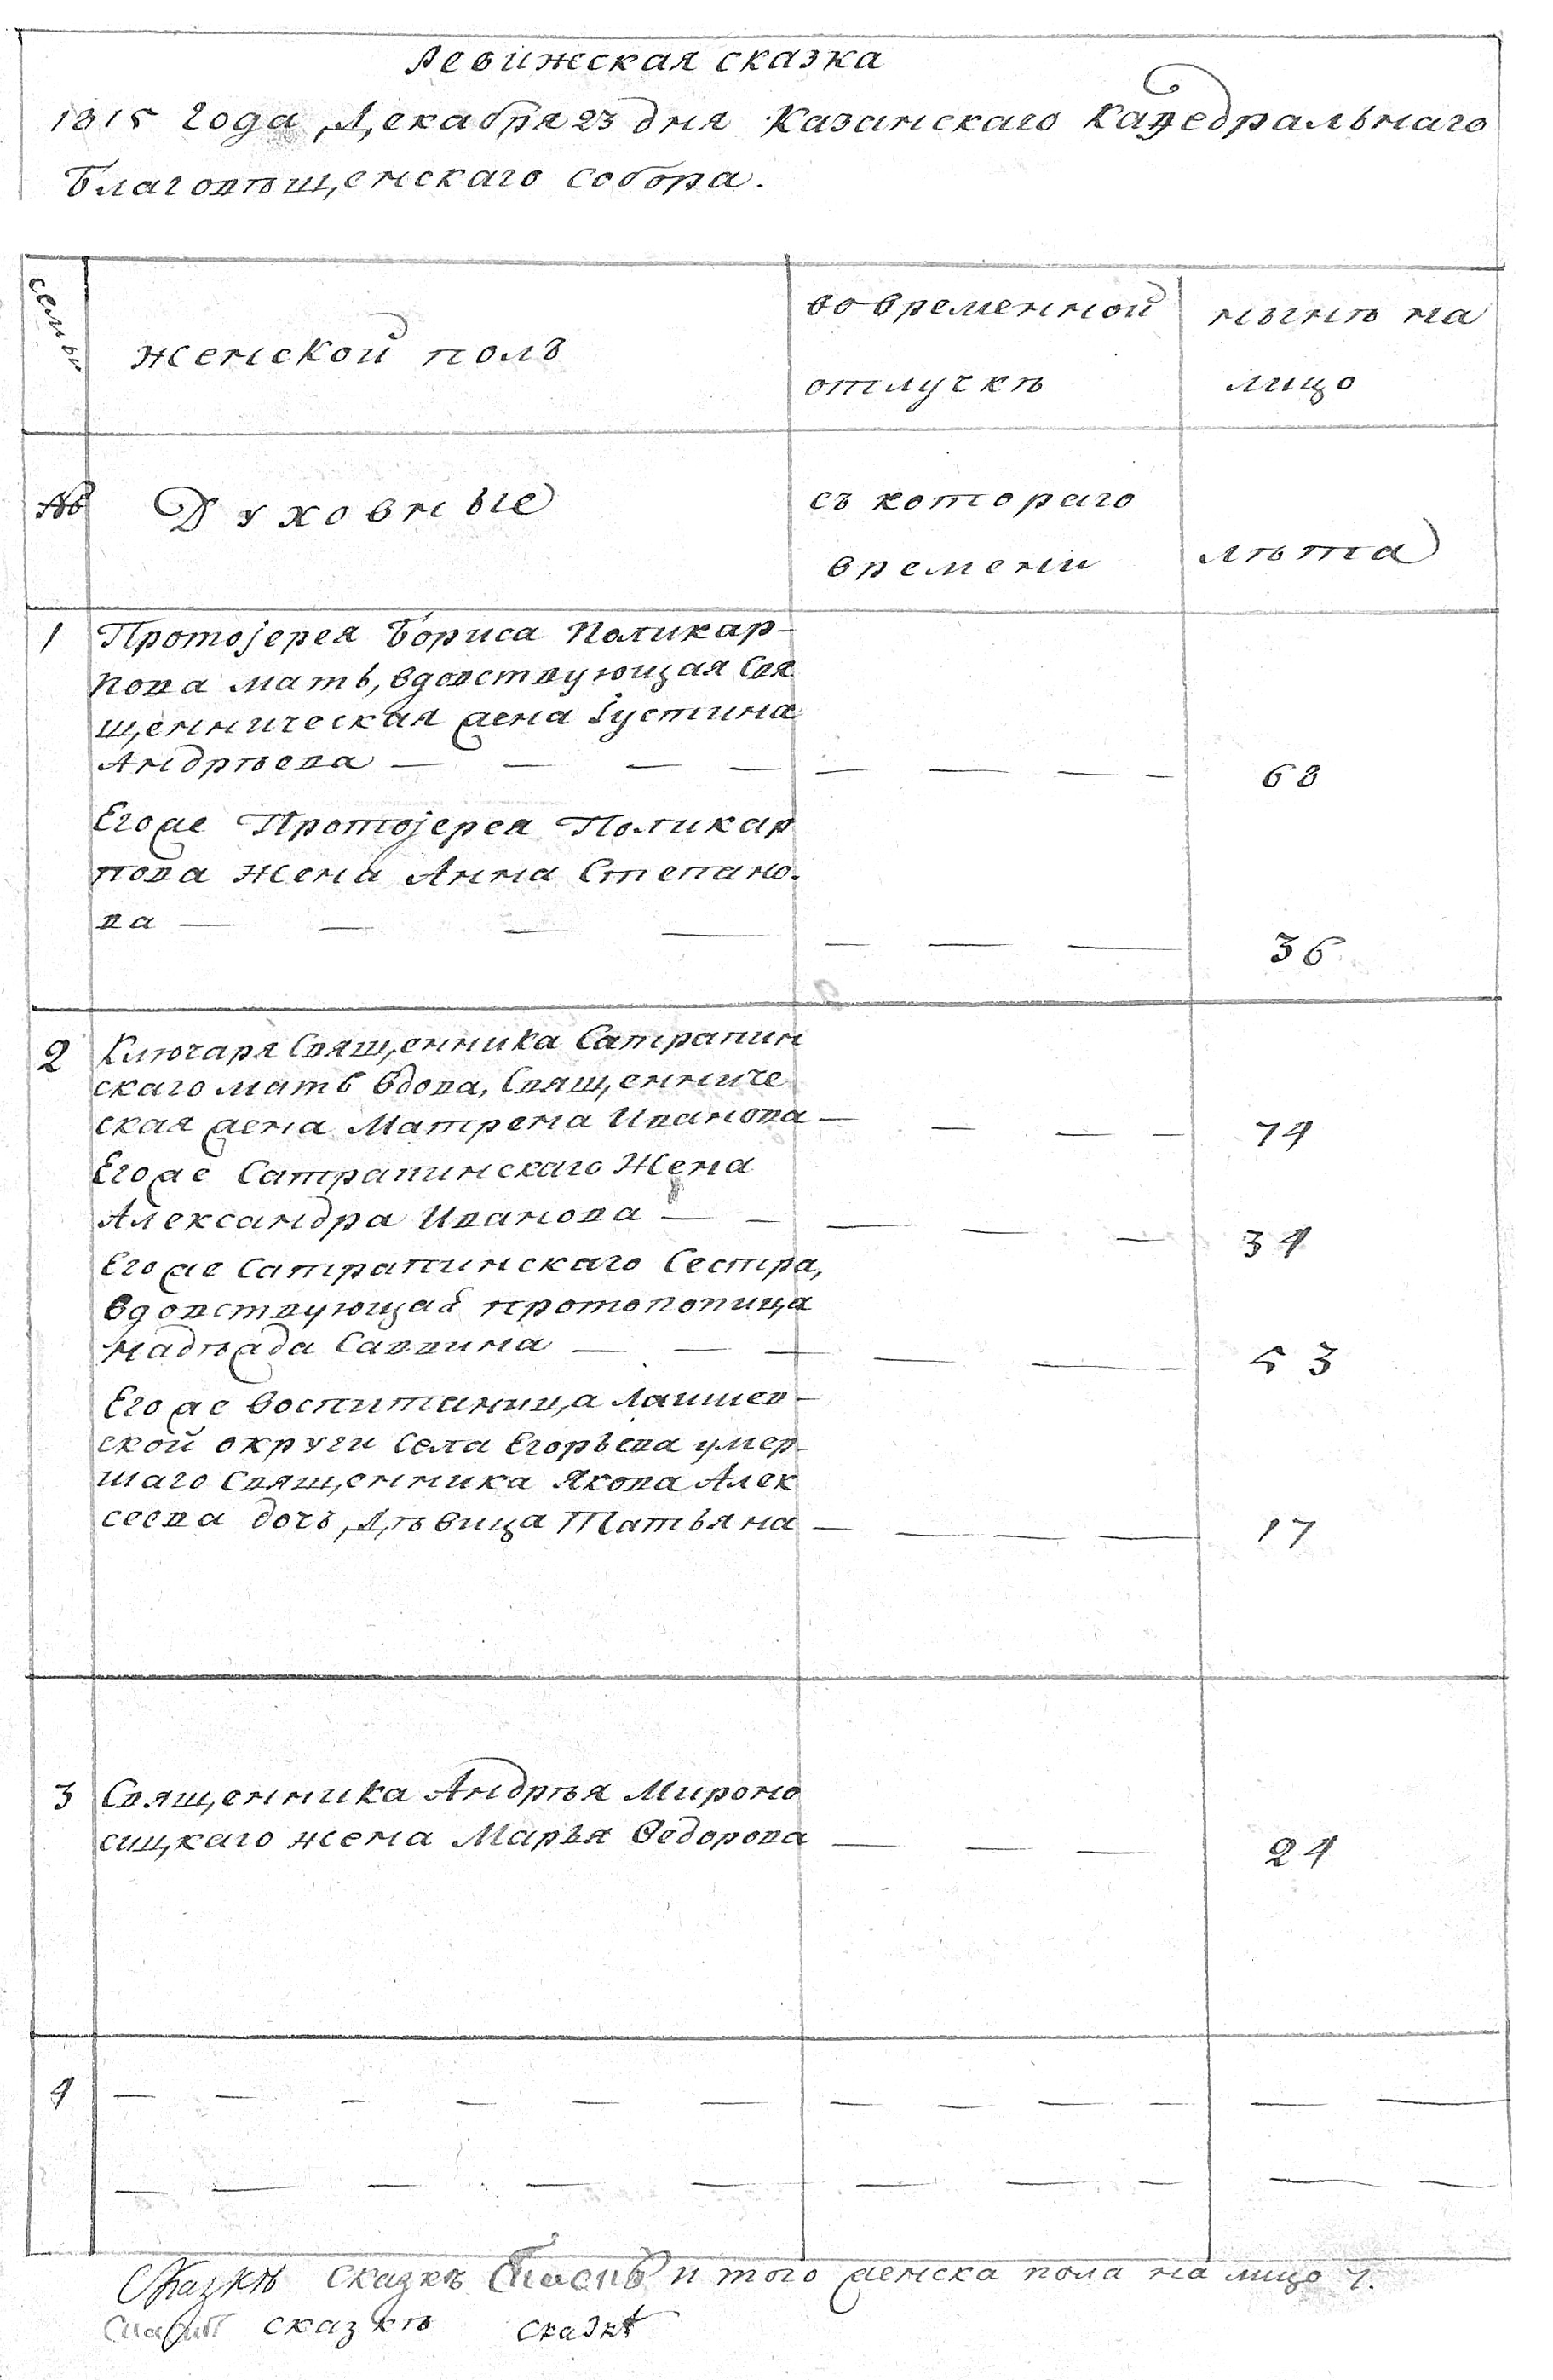 Ревижская сказка
1815 Года Декабря 23 дня Казанскаго Каѳедральнаго
Благовѣщенскаго собора.
семьи
женской полъ
во временной
отлучкѣ
нынѣ на
лицо
№
Духовные
съ котораго
времени
лѣта
1 Протоjерея Бориса Поликар-
пова мать, вдовствующая Свя
щенническая жена Iустина
Андрѣева — — — — — — — — 68
Егоже Протоjерея Поликар
пова жена Анна Степано-
ва — — — — — — — 36
2 Ключаря Священника Сатрапин
скаго мать вдова, Священниче
ская жена Матрена Иванова — — — — 74
Егоже Сатрапинскаго Жена
Александра Иванова — — — — — 34
Егоже Сатрапинскаго Сестра,
вдовствующая протопопица
Надѣжда Саввина — — — — — — 53
Егоже воспитаница Лаишев-
ской округи Села Егорьева умер-
шаго Священника Якова Алек
сеева дочь, Дѣвица Татьяна — — — — 17
3 Священника Андрѣя Мироно
сицкаго жена Марья Ѳедорова — — — 24
4 — — — — — — — — — — — —
— — — — — — — — — — —
Сказкѣ сказкѣ итого женска пола на лицо
сказкѣ